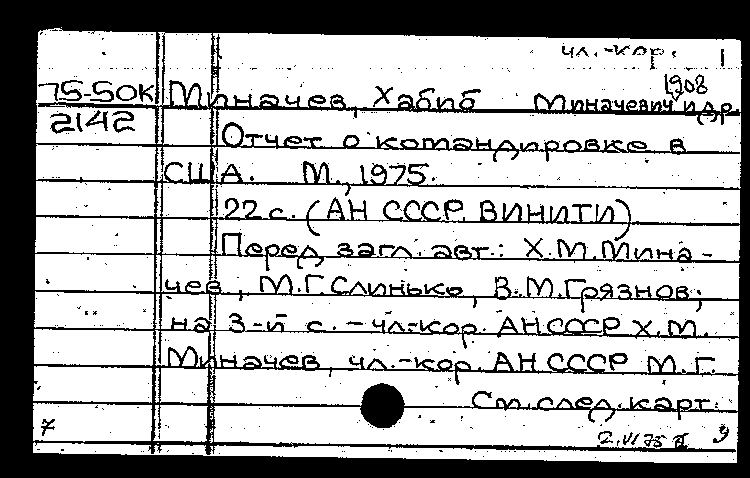 чл.-кор. 1
1908
75-50к Миначев, Хабиб Миначевич и др.
2142
Отчет о командировке в
США. М., 1975.
22 с. (АН СССР. ВИНИТИ)
Перед загл. авт.: Х.М.Мина-
чев, М.Г.Слинько, В.М.Грязнов;
на 3-й с. - чл.-кор. АН СССР Х.М.
Миначев, чл.-кор. АН СССР М.Г.
См. след. карт.
7 2.VI 75 9